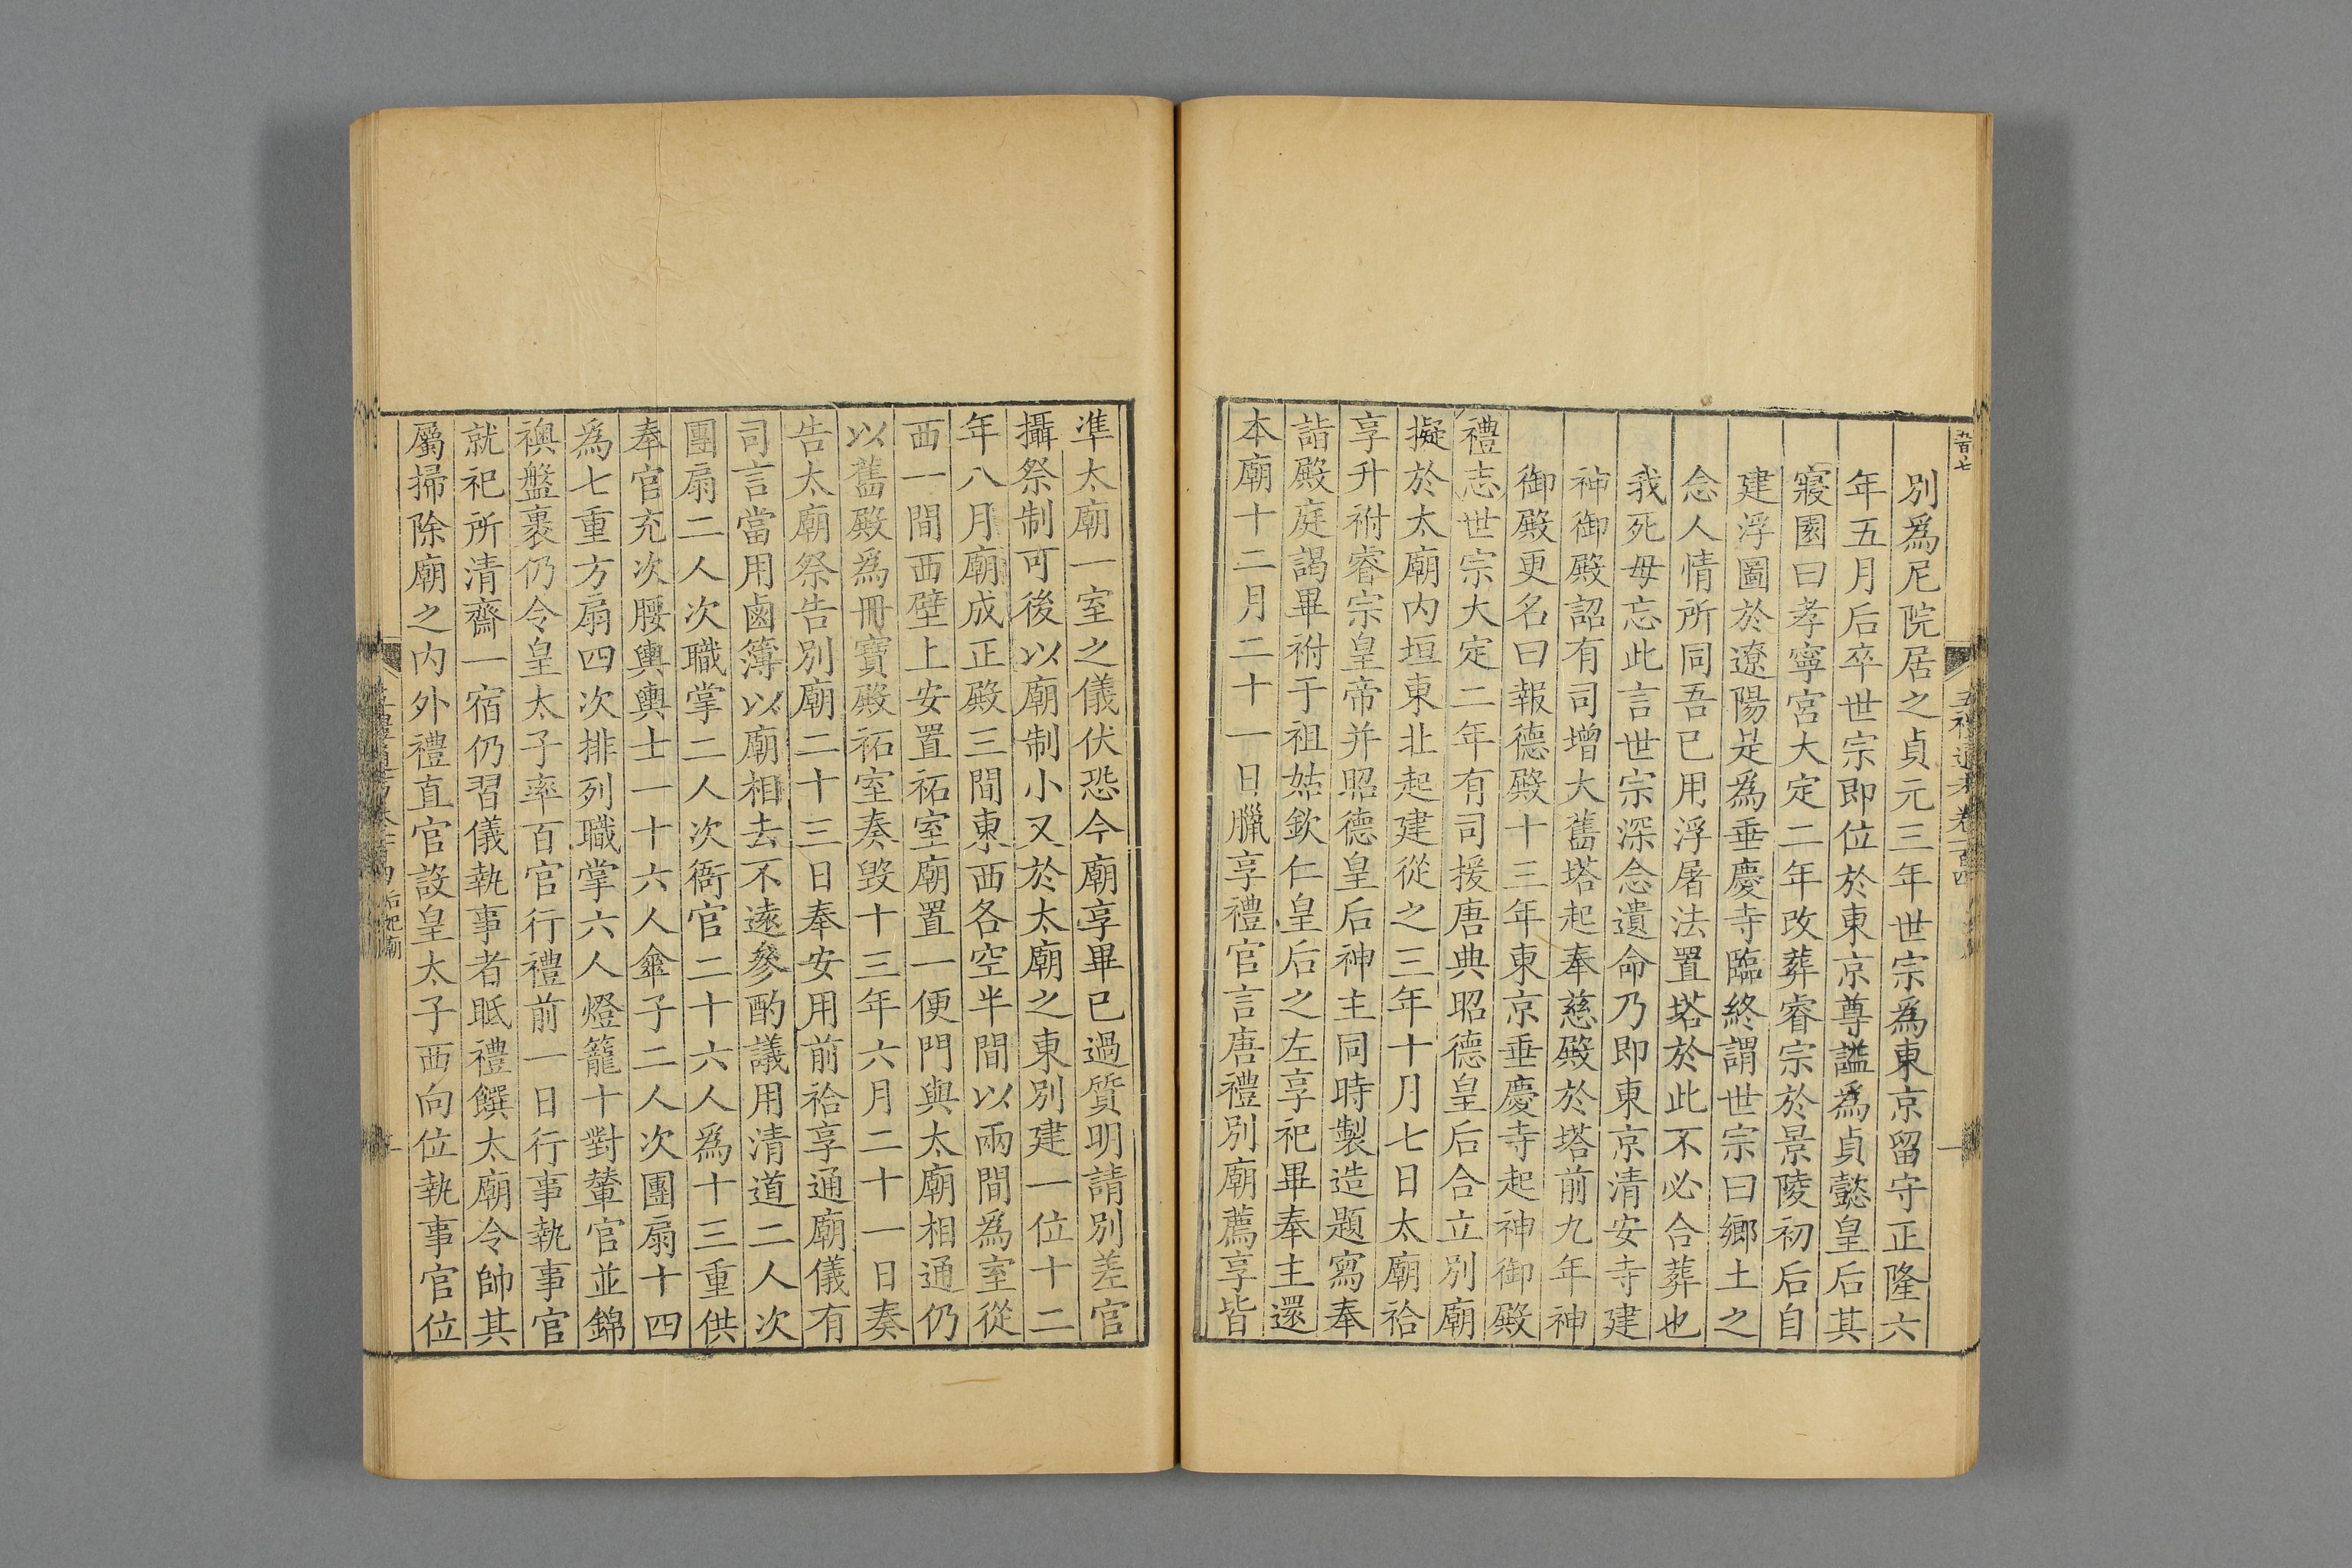 別爲尼院居之貞元三年世宗爲東京留守正隆六
年五月后卒世宗即位於東京尊謚爲貞懿皇后其
寢園曰孝寧宮大定二年改葬睿宗於景陵初后自
建浮圖於遼陽是爲垂慶寺臨終謂世宗曰鄉土之
念人情所同吾已用浮屠法置塔於此不必合葬也
我死毋忘此言世宗深念遺命乃即東京清安寺建
神御殿詔有司增大舊塔起奉慈殿於塔前九年神
御殿更名曰報德殿十三年東京垂慶寺起神御殿
禮志世宗大定二年有司援唐典昭德皇后合立別廟
擬於太廟内垣東北起建從之三年十月七日太廟祫
享升祔睿宗皇帝并昭德皇后神主同時製造題寫奉
詣殿庭謁畢祔于祖姑欽仁皇后之左享祀畢奉主還
本廟十二月二十一日臘享禮官言唐禮別廟薦享皆
準太廟一室之儀伏恐今廟享畢已過質明請別差官
攝祭制可後以廟制小又於太廟之東別建一位十二
年八月廟成正殿三間東西各空半間以兩間爲室從
西一間西壁上安置祏室廟置一便門與太廟相通仍
以舊殿爲冊寶殿祏室奏毀十三年六月二十一日奏
告太廟祭告別廟二十三日奉安用前祫享通廟儀有
司言當用鹵簿以廟相去不遠參酌議用清道二人次
團扇二人次職掌二人次衙官二十六人爲十三重供
奉官充次腰輿輿士一十六人傘子二人次團扇十四
爲七重方扇四次排列職掌六人燈籠十對輦官並錦
襖盤裹仍令皇太子率百官行禮前一日行事執事官
就祀所清齋一宿仍習儀執事者眡禮饌太廟令帥其
屬掃除廟之内外禮直官設皇太子西向位執事官位